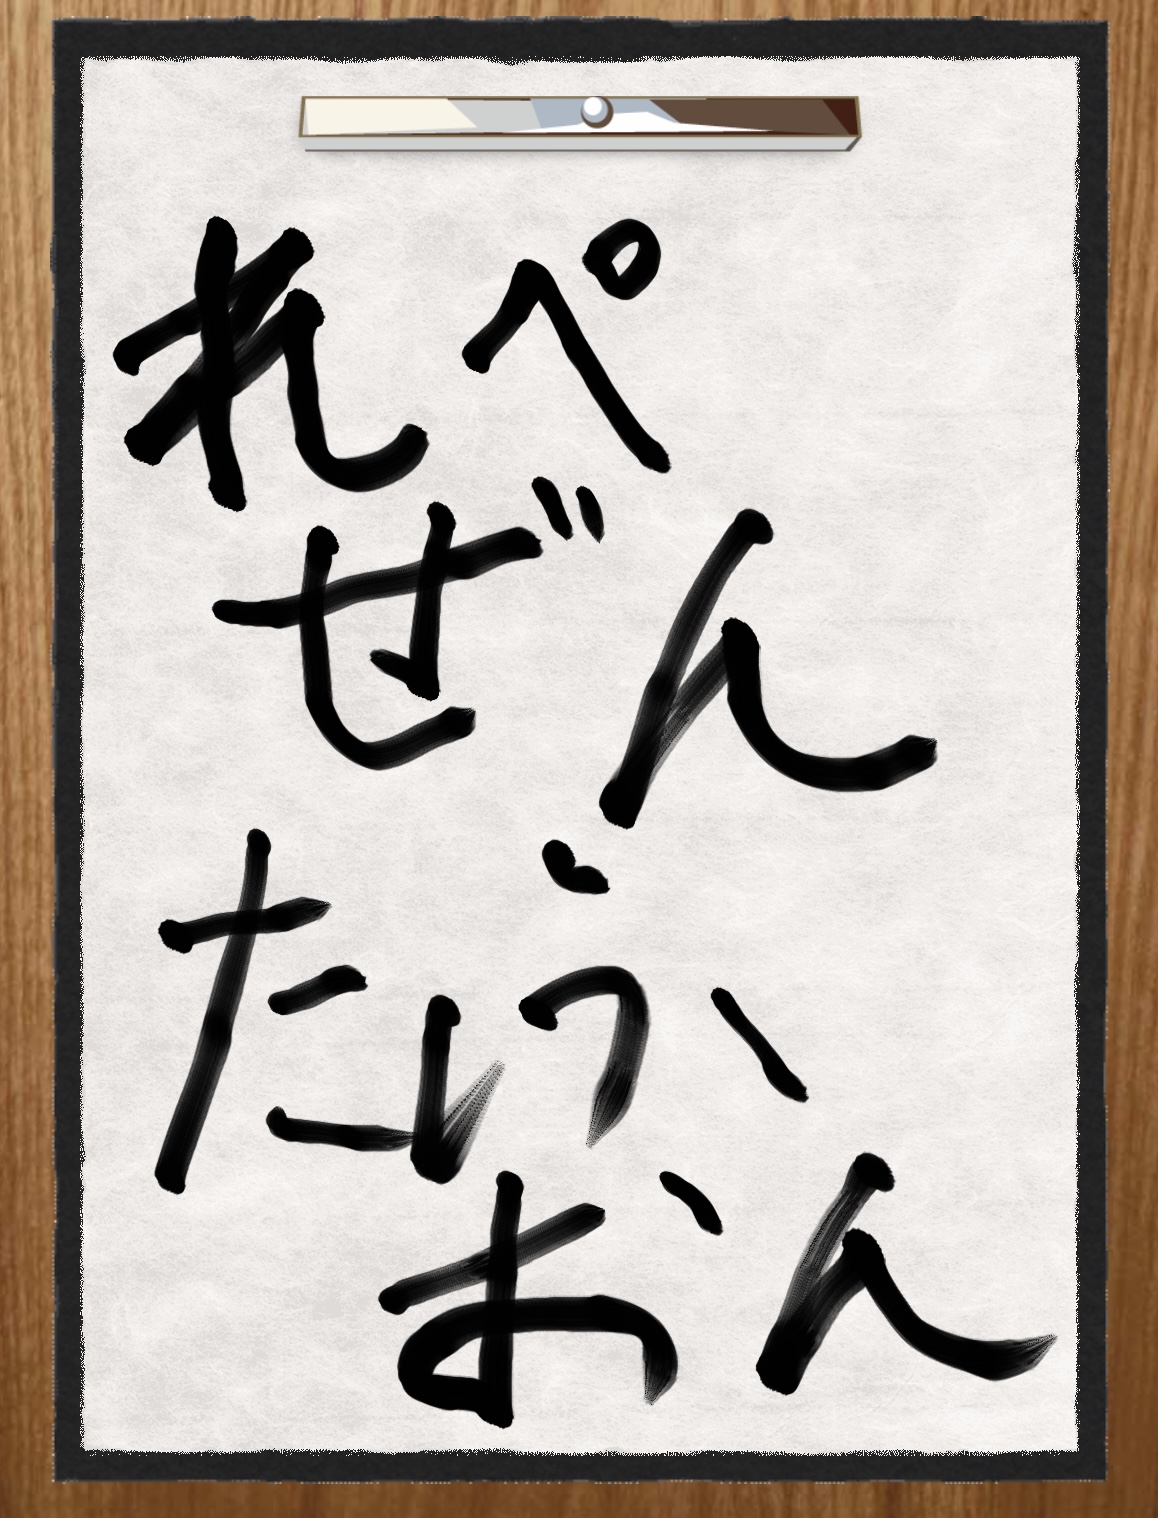 ぺんういん
れぜたお